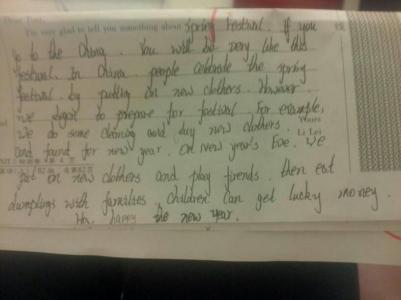 Dear Tom,
I'm very glad to tell you something about Spring Festival. If you
go to the China. You will be very like this
festival. In China people celebrate the spring
festival by putting on new clothers. However.
we begin to prepare for festival. For example,
we do some cleaning and buy new clothers. Yours
and found for new year. On New year's Eve. We Li Lei
put on new clothers and play firends. then eat
dumplings with families. children can get lucky money.
happy the new year.